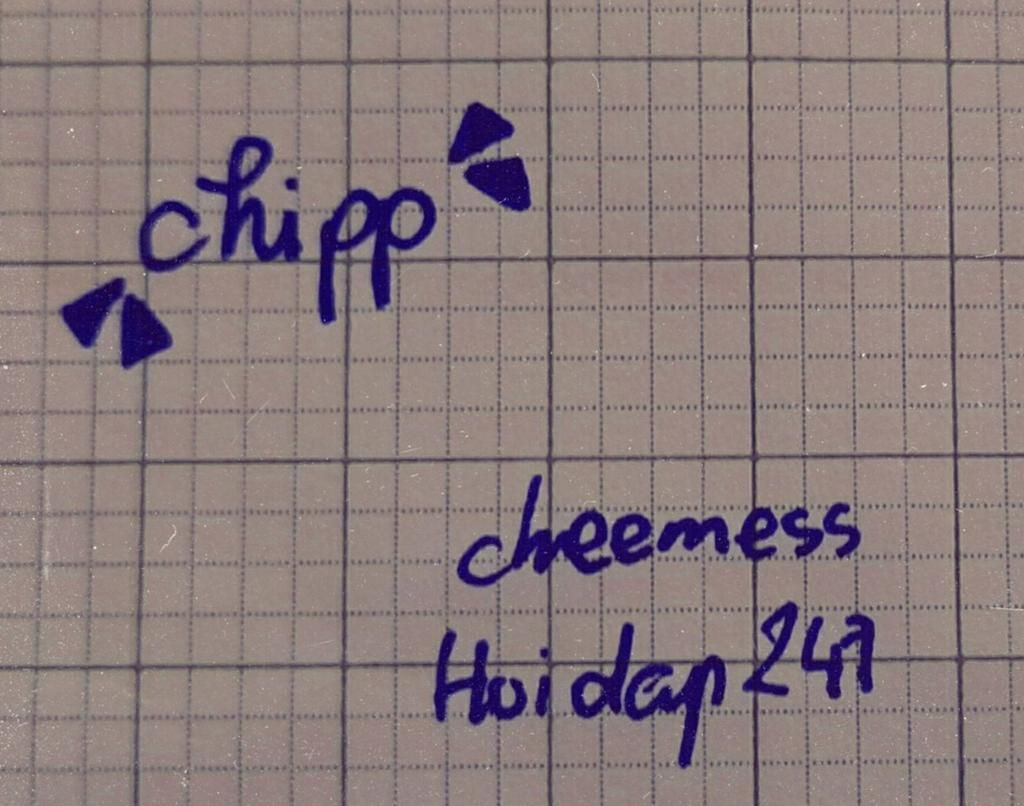 chipp
cheemess
Hoidap247